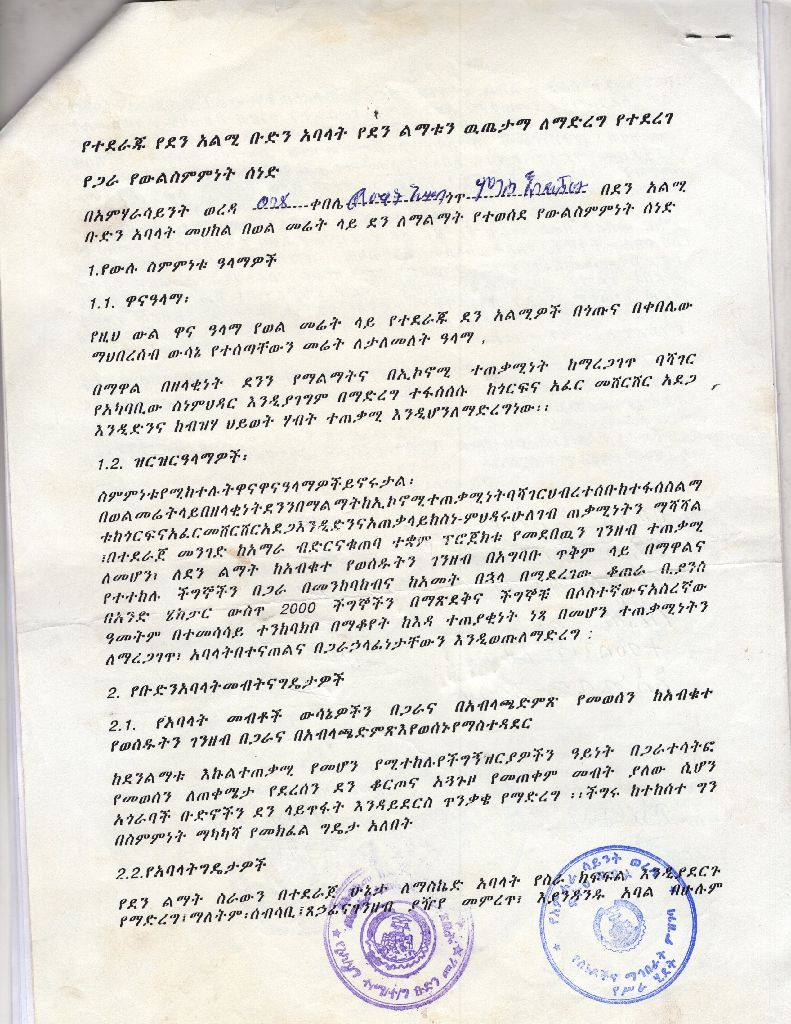 የተደራጁ የደን አልሚ ቡድን አባላት የደን ልማቱን ዉጤታማ ለማድረግ የተደረገ
የጋራ የውልስምምነት ሰነድ
በአምሃራሳይንት ወረዳ ቀበሌ ጎጥ በደን አልሚ
ቡድን አባላት መሀከል በወል መሬት ላይ ደን ለማልማት የተወሰደ የውልስምምነት ሰነድ
1.የውሉ ስምምነቱ ዓላማዎች
1.1. ዋናዓላማ፡
የዚህ ውል ዋና ዓላማ የወል መሬት ላይ የተደራጁ ደን አልሚዎች በጎጡና በቀበሌው
ማህበረሰብ ውሳኔ የተሰጣቸውን መሬት ለታለመለት ዓላማ ,
በማዋል በዘላቂነት ደንን የማልማትና በኢኮኖሚ ተጠቃሚነት ከማረጋገዋ ባሻገር
የአካባቢው ስነምህዳር እንዲያገግም በማድረግ ተፋሰስሱ ከጎርፍና አፈር መሸርሸር አደጋ
እንዲድንና ከብዝሃ ህይወት ሃብት ተጠቃሚ እንዲሆንለማድረግነው፡፡
1.2. ዝርዝርዓላማዎች፡
ስምምነቱየሚከተሉትዋናዋናዓላማዎችይኖሩታል፡
በወልመሬትላይበዘላቂነትደንንበማልማትከኢኮኖሚተጠቃሚነትባሻገርህብረተሰቡከተፋሰስልማ
ቱከጎርፍናአፈርመሸርሸርአደጋእንዲድንናአጠቃላይከስነ-ምህዳሩሁለገብ ጠቃሚነትን ማሻሻል
፣በተደራጀ መንገድ ከአማራ ብድርናቁጠባ ተቋም ፕሮጀክቱ የመደበዉን ገንዘብ ተጠቃሚ
ለመሆን፣ ለደን ልማት ከአብቁተ የወሰዱትን ገንዘብ በአግባቡ ጥቅም ላይ በማዋልና
የተተከሉ ችግኞችን በጋራ በመንከባከብና ከአመት በኋላ በሚደረገው ቆጠራ ቢያንስ
በአንድ ሄክታር ውስጥ 2000 ችግኞችን በማጽደቅና ችግኞቹ በሶስተኛውናአስረኛው
ዓመትም በተመሳሳይ ተንከባክቦ በማቆየት ከእዳ ተጠያቂነት ነጻ በመሆን ተጠቃሚነትን
ለማረጋገዋ፣ አባላትበተናጠልና በጋራኃላፊነታቸውን እንዲወጡለማድረግ ፡
2. የቡድንአባላትመብትናግዴታዎች
2.1. የአባላት መብቶች ውሳኔዎችን በጋራና በአብላጫድምጽ የመወሰን ከአብቁተ
የወሰዱትን ገንዘብ በጋራና በአብላጫድምጽእየወሰኑየማስተዳደር
ከደንልማቱ እኩልተጠቃሚ የመሆን የሚተከሉየችግኝዝርያዎችን ዓይነት በጋራተሳትፎ
የመወሰን ለጠቀሜታ የደረሰን ደን ቆርጦና አጓጉዞ የመጠቀም መብት ያለው ሲሆን
አጎራባች ቡድኖችን ደን ላይጥፋት እንዳይደርስ ጥንቃቄ የማድረግ ፡፡ችግሩ ከተከሰተ ግን
በስምምነት ማካካሻ የመክፈል ግዴታ አለበት
2.2.የአባላትግዴታዎች
የደን ልማት ስራውን በተደራጀ ሁኔታ ለማስኬድ አባላት የስራ ክፍፍል እንዲያደርጉ
የማድረግ፣ማለትም፡ሰብሳቢ፣ጸኃፊናገንዘብ ያዥየ መምረጥ፣ እያንዳንዱ አባል በሁሉም